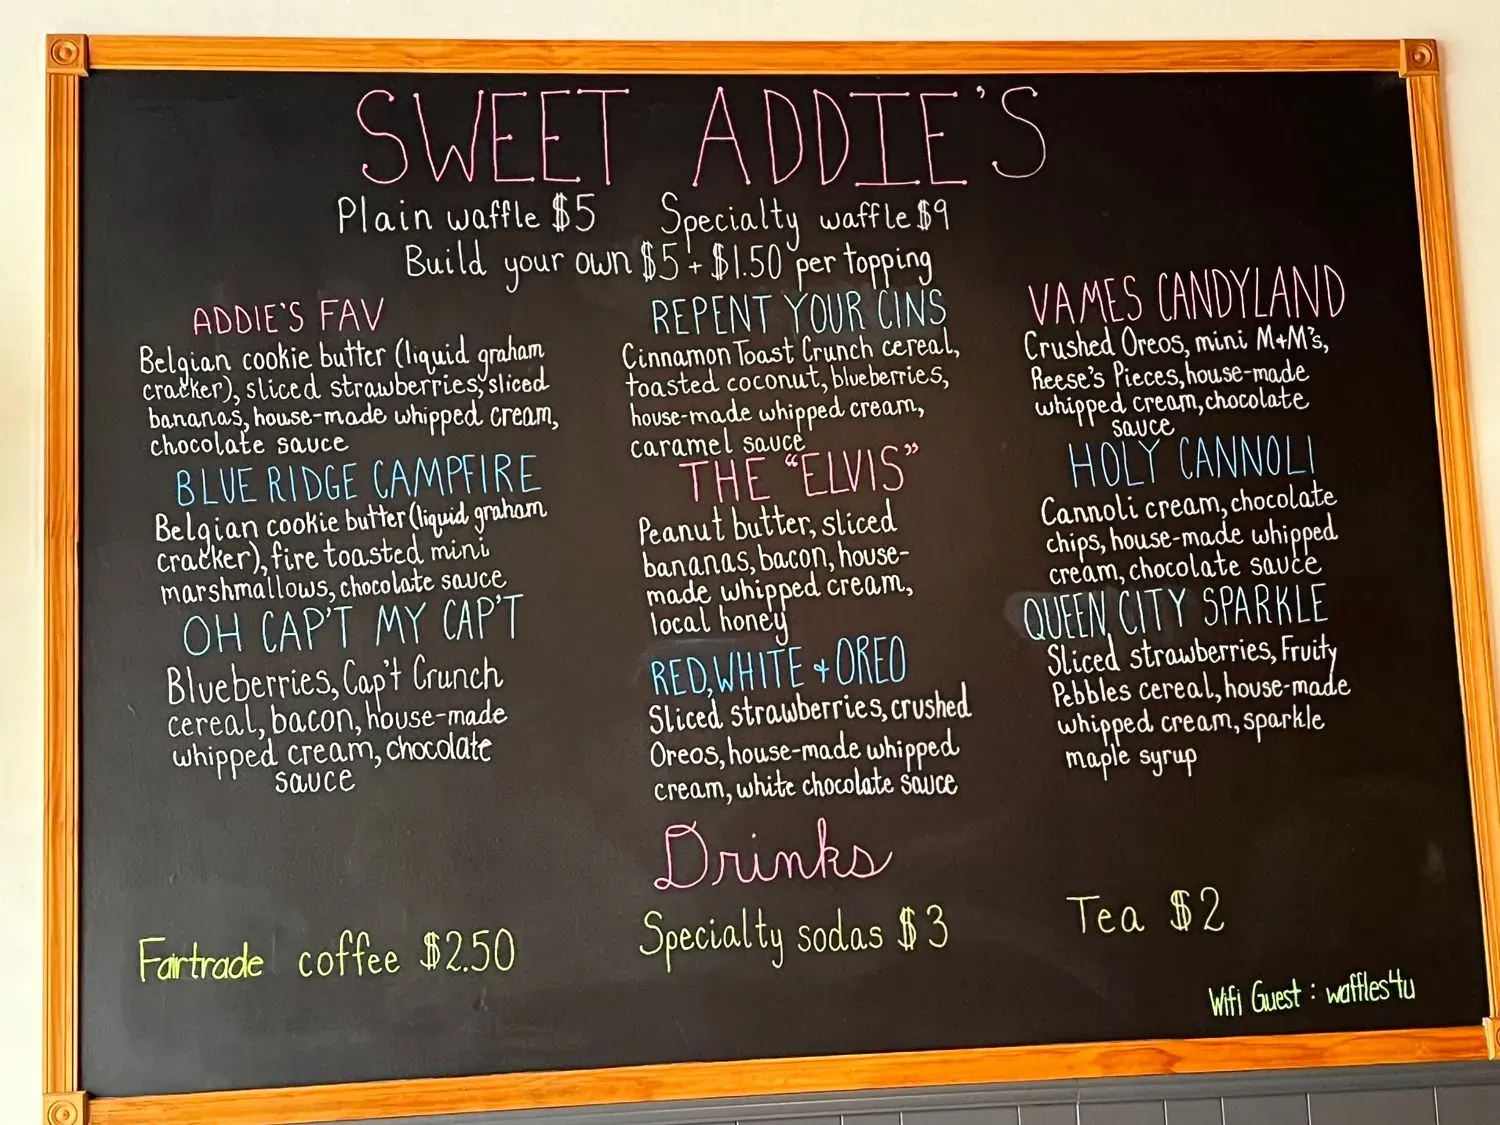 SWEET ADDIE'S
Plain waffle $5 Specialty waffle $9
Build your own $5 + $1.50 per topping
ADDIE'S FAV
Belgian cookie butter (liquid graham
cracker), sliced strawberries, sliced
bananas, house-made whipped cream,
chocolate sauce
BLUE RIDGE CAMPFIRE
Belgian cookie butter (liquid graham
cracker), fire toasted mini
marshmallows, chocolate sauce
OH CAP'T MY CAP'T
Blueberries, Cap't Crunch
cereal, bacon, house-made
whipped cream, chocolate
sauce
REPENT YOUR CINS
Cinnamon Toast Crunch cereal,
toasted coconut, blueberries,
house-made whipped cream,
caramel sauce
THE "ELVIS"
Peanut butter, sliced
bananas, bacon, house-
made whipped cream,
local honey
RED, WHITE + OREO
Sliced strawberries, crushed
Oreos, house-made whipped
cream, white chocolate sauce
VAMES CANDYLAND
Crushed Oreos, mini M+M's,
Reese's Pieces, house-made
whipped cream, chocolate
sauce
HOLY CANNOLI
Cannoli cream, chocolate
chips, house-made whipped
cream, chocolate sauce
QUEEN CITY SPARKLE
Sliced strawberries, Fruity
Pebbles cereal, house-made
whipped cream, sparkle
maple syrup
Drinks
Fairtrade coffee $2.50
Specialty sodas $3
Tea $2
Wifi Guest : waffles4u